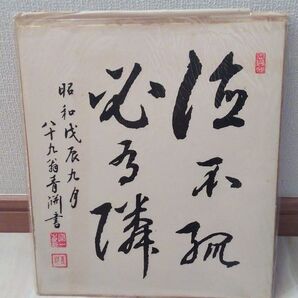 徳不孤
必有隣
昭和戊辰九月
八十九翁青渕書